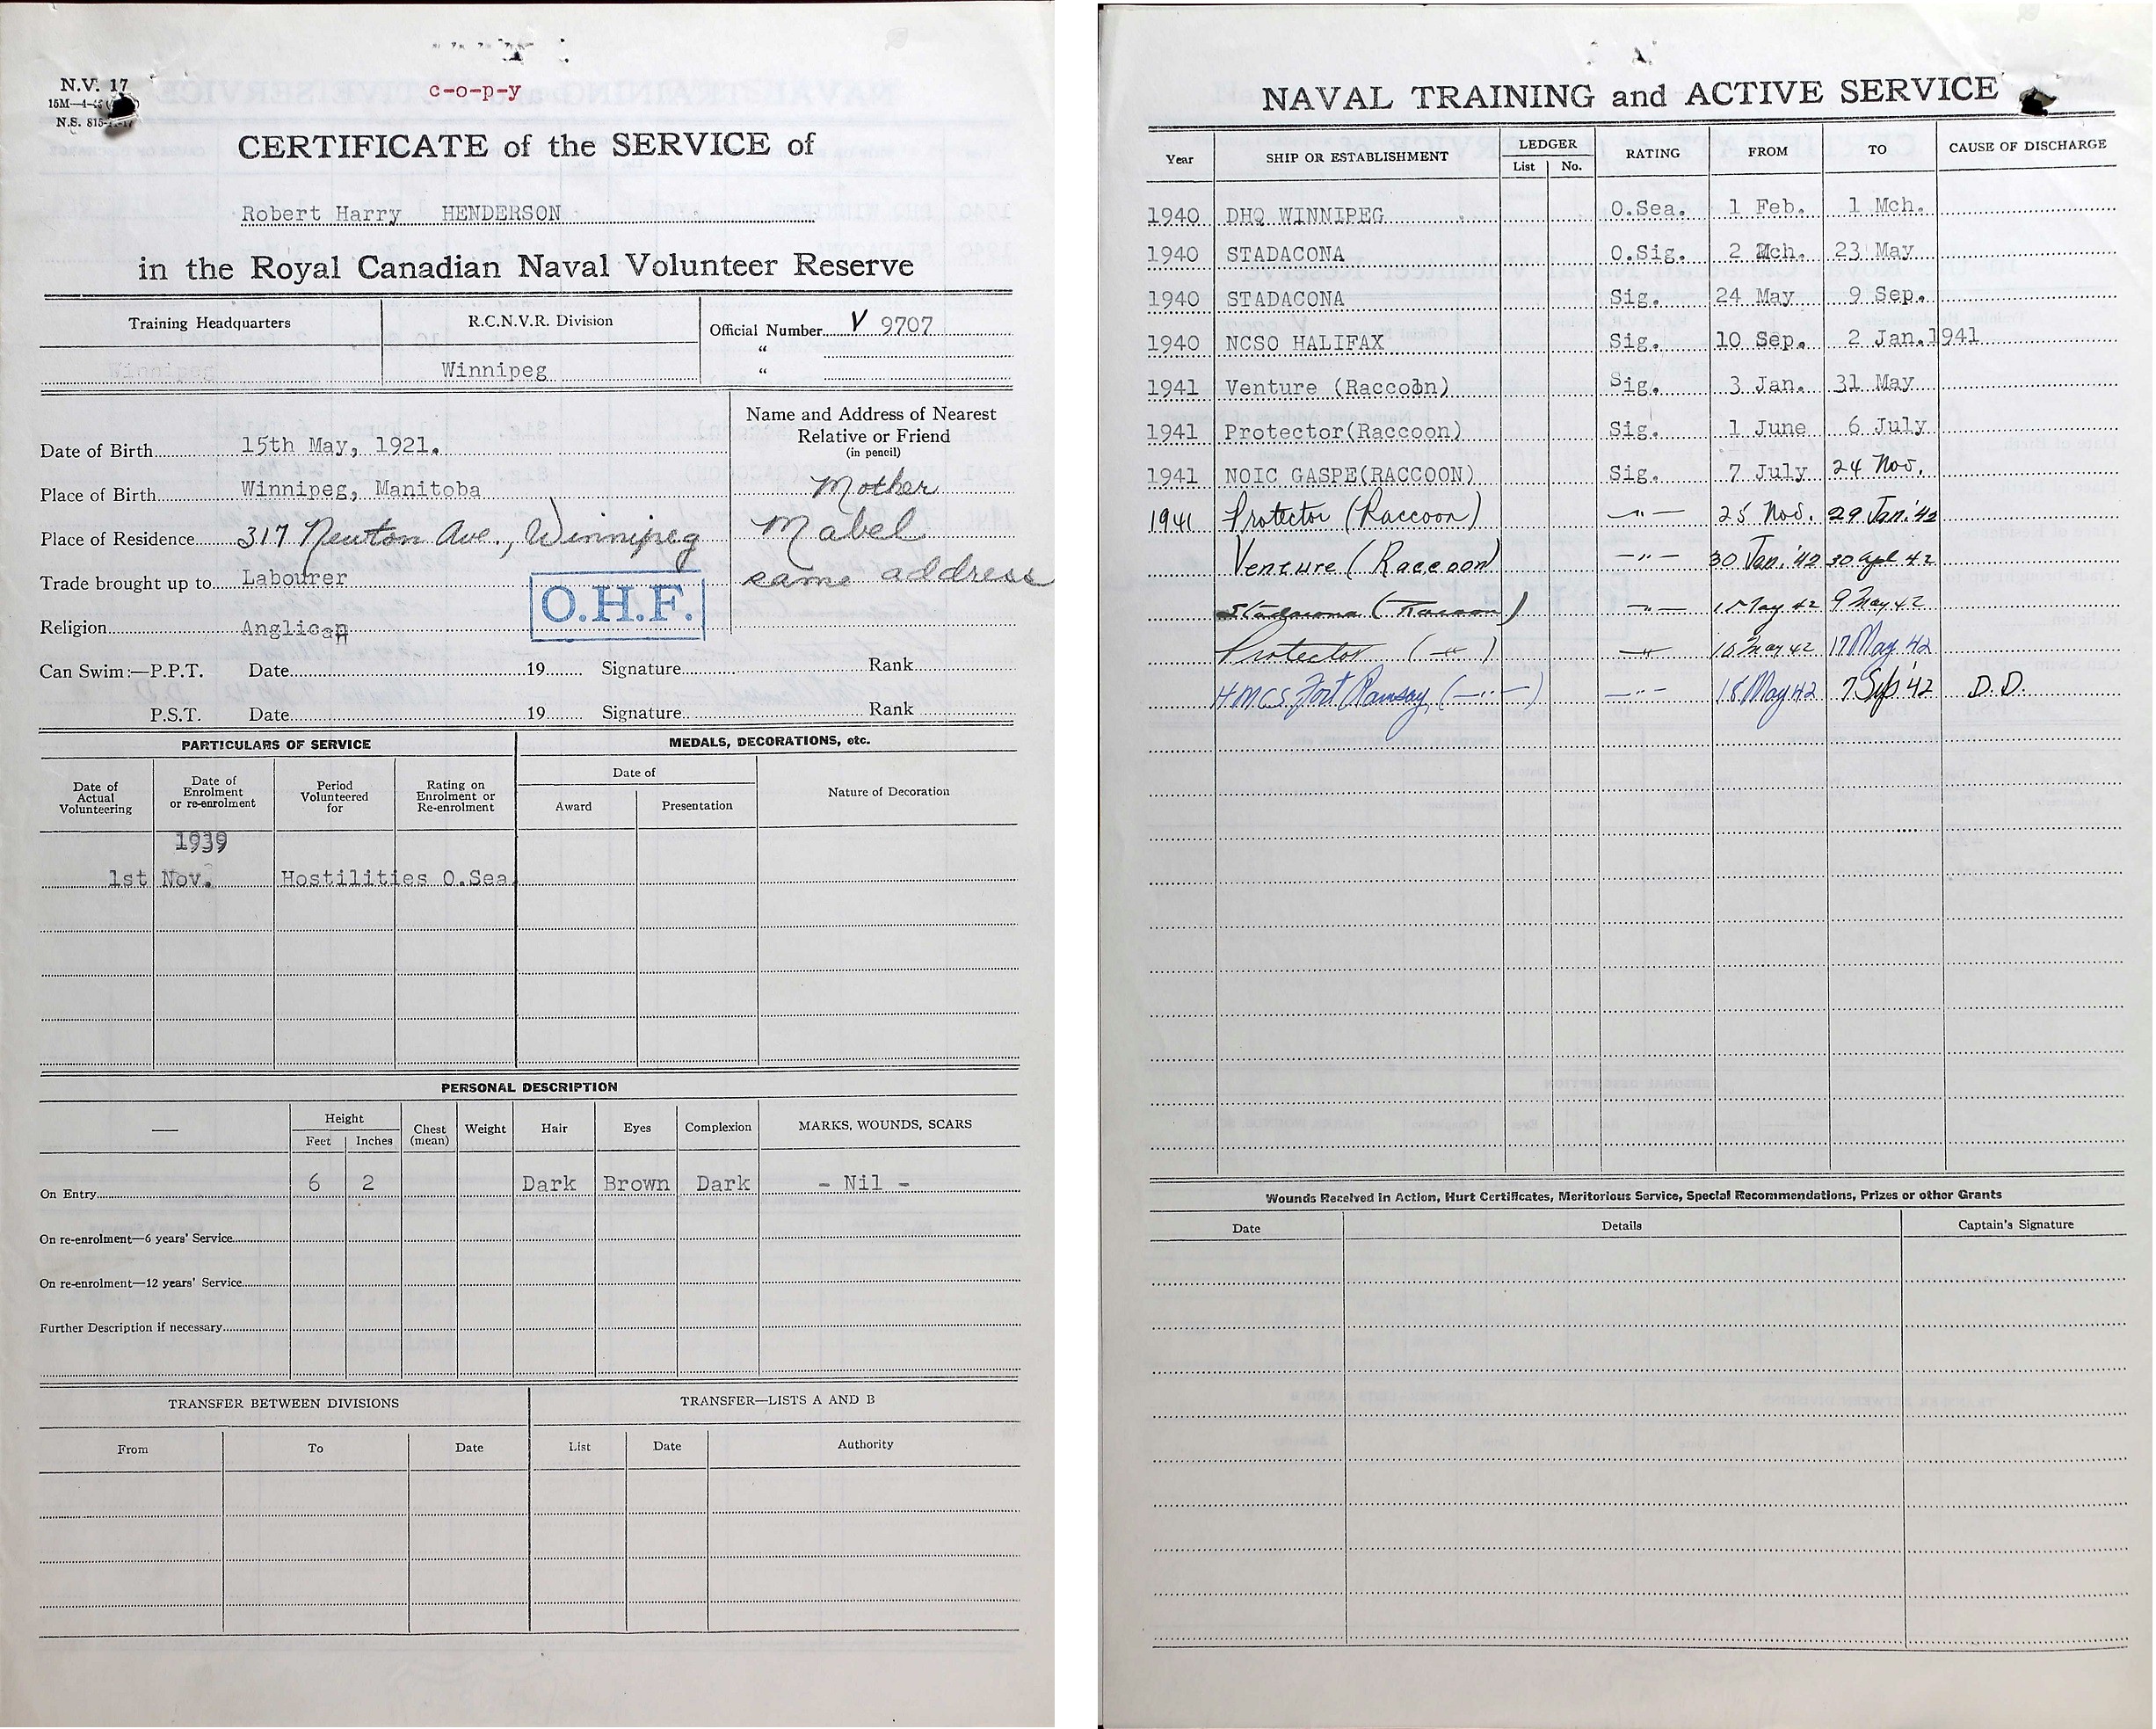 N.V. 17
c-o-p-y
CERTIFICATE of the SERVICE of
Robert Harry HENDERSON
in the Royal Canadian Naval Volunteer Reserve
Training Headquarters R.C.N.V.R. Division Official Number V 9707
"
Winnipeg Winnipeg "
Name and Address of Nearest Relative or Friend
(in pencil)
Date of Birth 15th May, 1921.
Place of Birth Winnipeg, Manitoba Mother
Place of Residence 317 Newton Ave., Winnipeg Mabel
Trade brought up to Labourer same address
O.H.F.
Religion Anglican
Can Swim:—P.P.T. Date 19 Signature Rank
P.S.T. Date 19 Signature Rank
PARTICULARS OF SERVICE MEDALS, DECORATIONS, etc.
Date of Actual Volunteering Date of Enrolment or re-enrolment Period Volunteered for Rating on Enrolment or Re-enrolment Date of Award Presentation Nature of Decoration
1939
1st Nov. Hostilities O.Sea.
PERSONAL DESCRIPTION
— Height Feet Inches Chest (mean) Weight Hair Eyes Complexion MARKS, WOUNDS, SCARS
On Entry 6 2 Dark Brown Dark - Nil -
On re-enrolment—6 years' Service
On re-enrolment—12 years' Service
Further Description if necessary
TRANSFER BETWEEN DIVISIONS TRANSFER—LISTS A AND B
From To Date List Date Authority
NAVAL TRAINING and ACTIVE SERVICE
Year SHIP OR ESTABLISHMENT LEDGER List No. RATING FROM TO CAUSE OF DISCHARGE
1940 DHQ WINNIPEG O.Sea. 1 Feb. 1 Mch.
1940 STADACONA O.Sig. 2 Mch. 23 May
1940 STADACONA Sig. 24 May 9 Sep.
1940 NCSO HALIFAX Sig. 10 Sep. 2 Jan. 1941
1941 Venture (Raccoon) Sig. 3 Jan. 31 May
1941 Protector(Raccoon) Sig. 1 June 6 July
1941 NOIC GASPE(RACCOON) Sig. 7 July 24 Nov.
1941 Protector (Raccoon) —"— 25 Nov. 29 Jan. '42
Venture (Raccoon) —"— 30 Jan. '42 30 Apl 42
Stadacona (Raccoon) —"— 1 May 42 9 May 42
Protector (—"—) —"— 10 May 42 17 May 42
HMCS Fort Ramsay (—"—) —"— 18 May 42 7 Sep '42 D.D.
Wounds Received in Action, Hurt Certificates, Meritorious Service, Special Recommendations, Prizes or other Grants
Date Details Captain's Signature